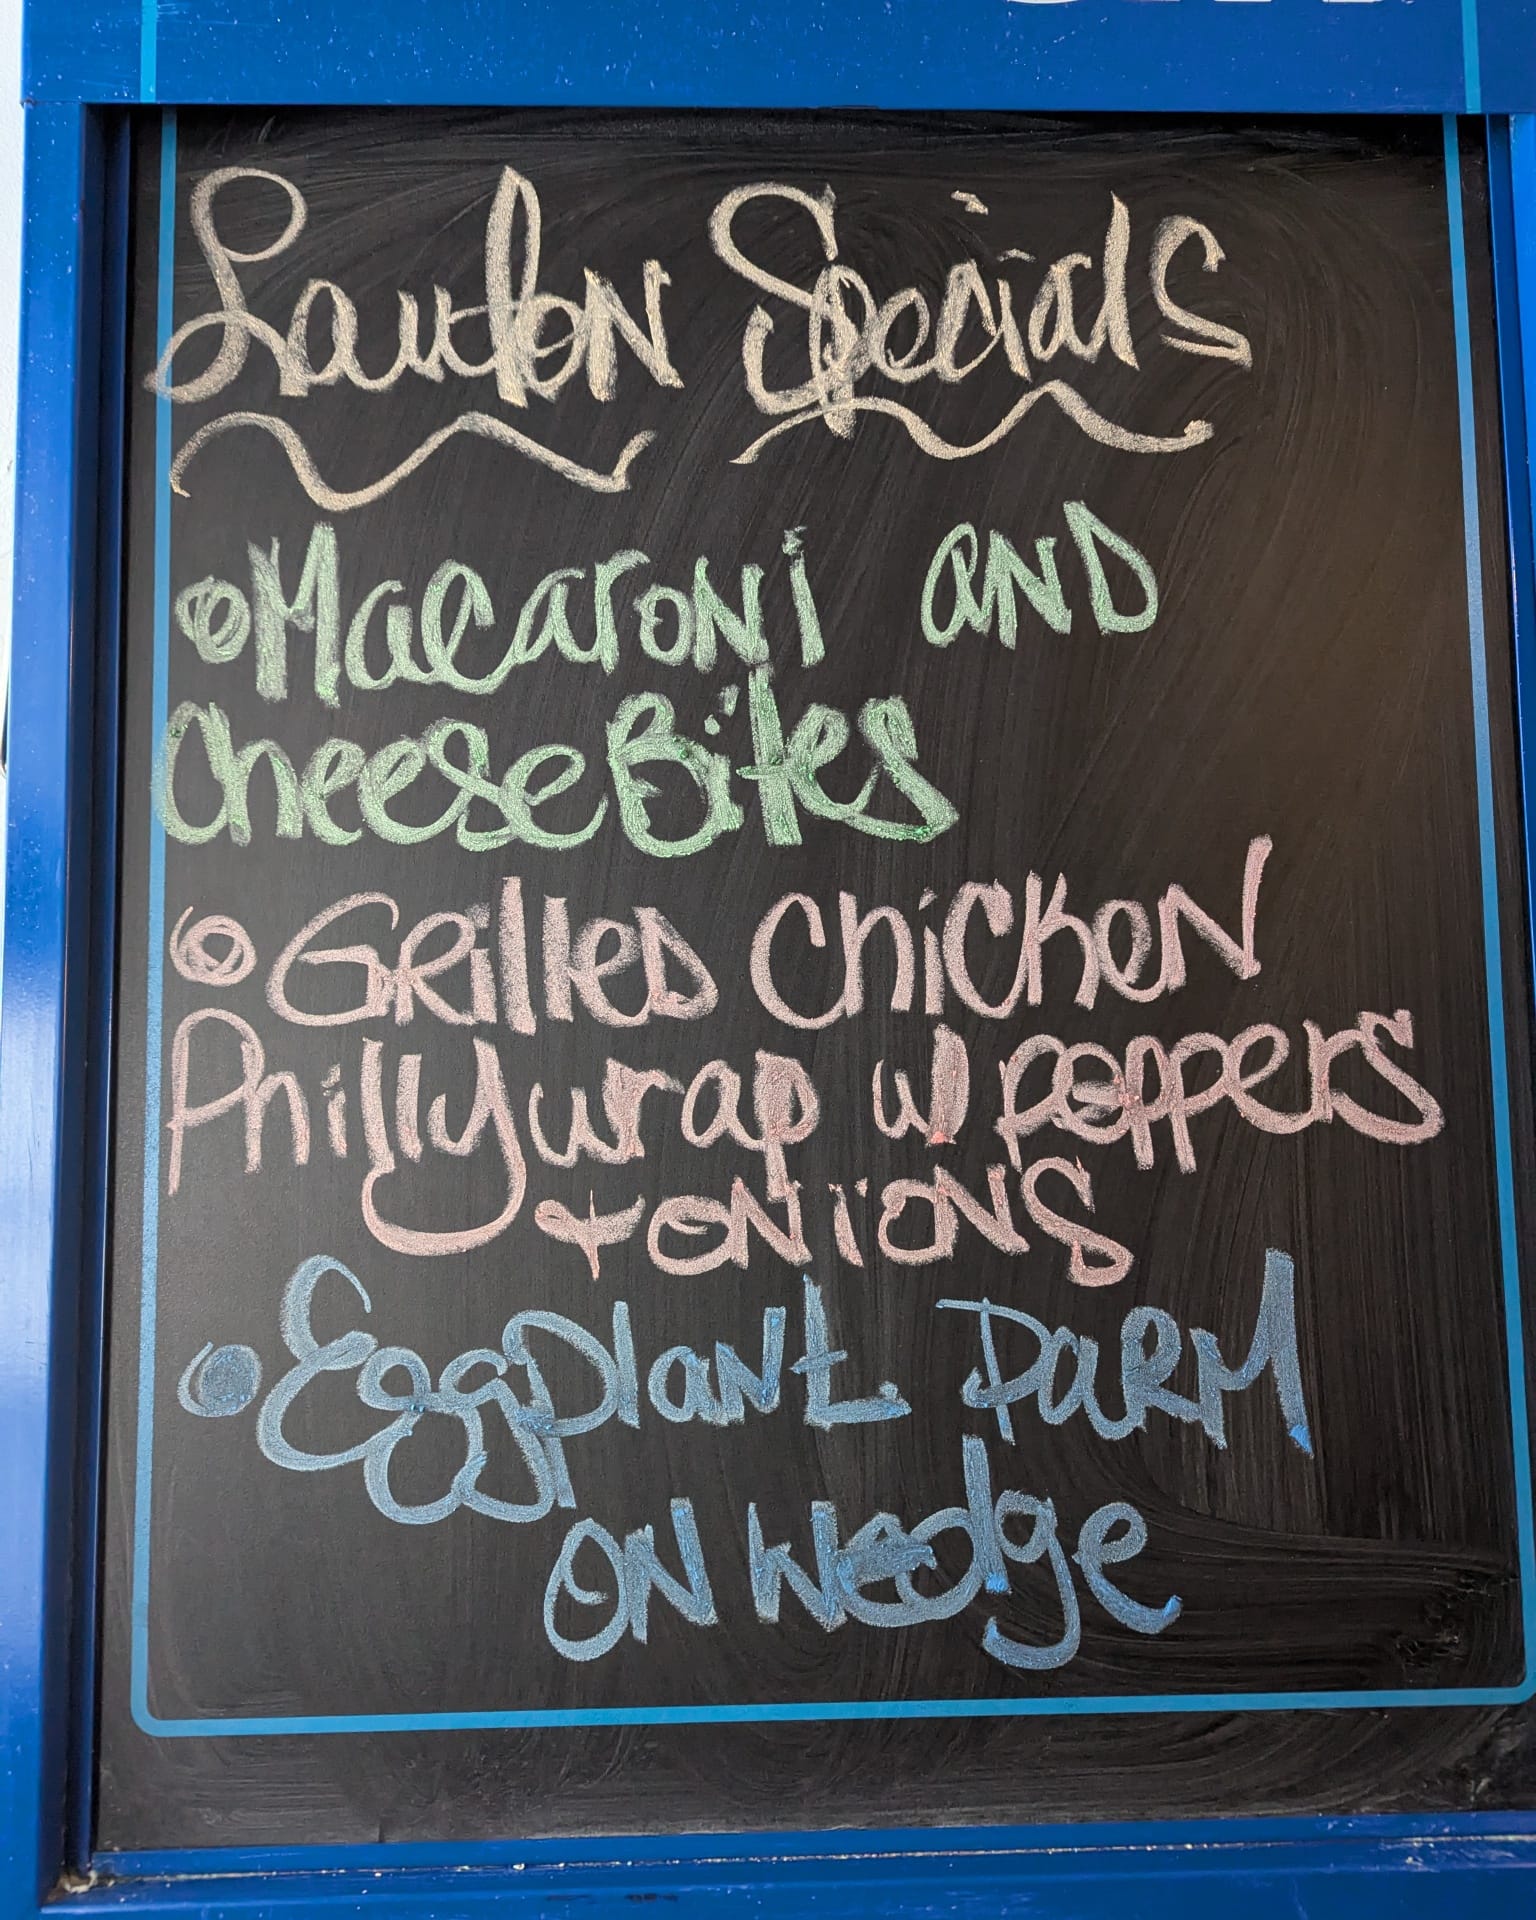 Lawton Specials
• Macaroni AND
Cheese Bites
• Grilled Chicken
Philly wrap w/ peppers
+ ONiONS
• Eggplant Parm
ON Wedge